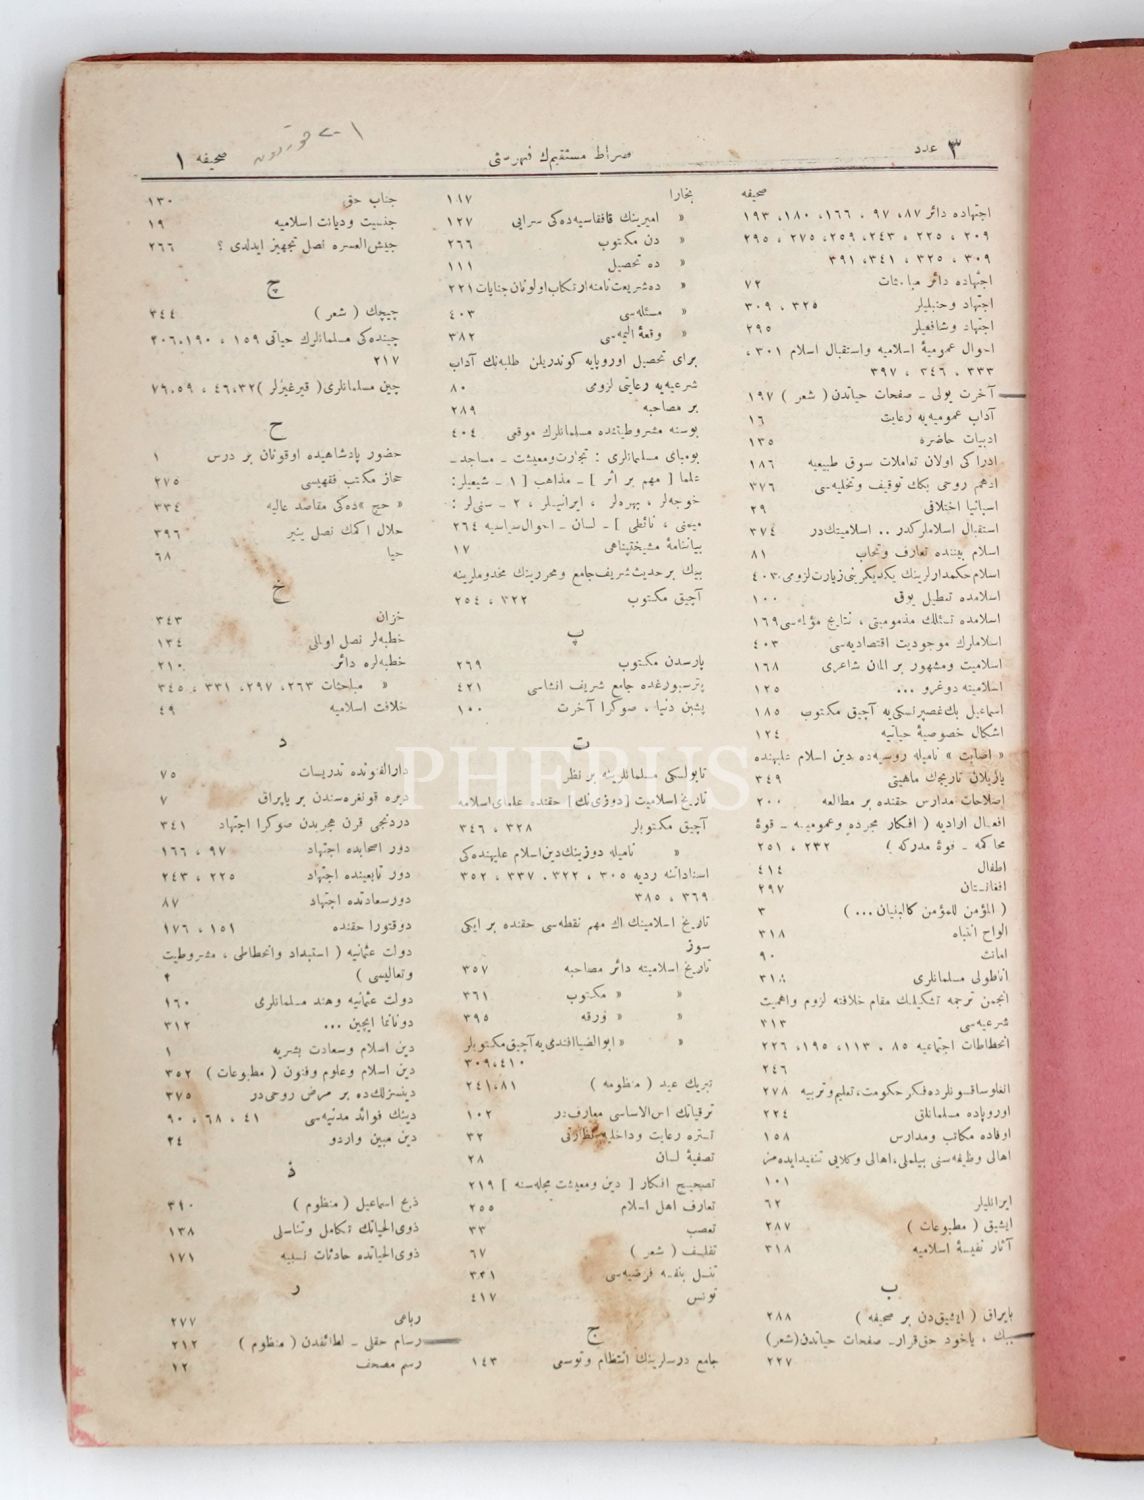 ٣ عدد
صراط مستقیمك فهرستی
صحیفه ١
صحیفه
اجتهاده دائر ٨٧، ٩٧ ، ١٦٦، ١٨٠، ١٩٣
٢٠٩ ، ٢٢٥ ، ٢٤٣، ٢٥٩، ٢٧٥ ، ٢٩٥
٣٠٩ ، ٣٢٥ ، ٣٤١، ٣٩١
اجتهاده دائر مباحثات ٧٢
اجتهاد وحنبلیلر ٣٢٥ ، ٣٠٩
اجتهاد وشافعیلر ٢٩٥
احوال عمومیۀ اسلامیه واستقبال اسلام ٣٠١،
٣٣٣ ، ٣٤٦ ، ٣٩٧
آخرت یولی ـ صفحات حیاتدن ( شعر ) ١٩٧
آداب عمومیه‌یه رعایت ١٦
ادبیات حاضره ١٣٥
ادراکی اولان تعاملات سوق طبیعیه ١٨٦
ادهم روحی بكك توقیف وتخلیه‌سی ٣٧٦
اسپانیا اختلافی ٢٩
استقبال اسلاملركدر .. اسلامیتك‌در ٣٧٤
اسلام بیننده تعارف وتحاب ٨١
اسلام حكمدارلرینك یكدیكرینی زیارت لزومی ٤٠٣
اسلامده تعطیل یوق ١٠٠
اسلامده تسئلك مذمومیتی ، نتایج مؤلمه‌سی ١٦٩
اسلاملرك موجودیت اقتصادیه‌سی ٤٠٣
اسلامیت ومشهور بر المان شاعری ١٦٨
اسلامیته دوغرو ... ١٢٥
اسماعیل بك غصپرنسكی‌یه آچیق مكتوب ١٨٥
اشكال خصوصیۀ حیاتیه ١٢٤
« اصابت » نامیله روسیه‌ده دین اسلام علیهنده
یازیلان تاریخك ماهیتی ٣٤٩
اصلاحات مدارس حقنده بر مطالعه ٢٠٠
افعال ارادیه ( افكار مجرده وعمومیه ـ قوۀ
محاكمه ـ قوۀ مدركه ) ٢٣٢ ، ٢٥١
اطفال ٤١٤
افغانستان ٢٩٧
( المؤمن للمؤمن كالبنیان ... ) ٣
الواح انتباه ٣١٨
امانت ٩٠
اناطولی مسلمانلری ٣١٨
انجمن ترجمه تشكیلنك مقام خلافته لزوم واهمیت
شرعیه‌سی ٣١٣
انحطاطات اجتماعیه ٨٥ ، ١١٣، ١٩٥، ٢٢٦
٢٤٦
انغلوساقسونلرده فكر حكومت، تعلیم وتربیه ٢٧٨
اوروپاده مسلمانلق ٢٢٤
اوفاده مكاتب ومدارس ١٥٨
اهالی وظیفه‌سنی بیلملی، اهالی وكلایی تنقید ایده‌مز
١٠١
ایرانلیلر ٦٢
ایشیق ( مطبوعات ) ٢٨٧
آثار نفیسۀ اسلامیه ٣١٨
ب
بایراق ( ایشیق‌دن بر صحیفه ) ٢٨٨
ببك ، یاخود حق قرار ـ صفحات حیاتدن (شعر)
٢٢٧
بخارا ١٨٧
« امیرینك قافقاسیه‌ده‌كی سرایی ١٢٧
« دن مكتوب ٢٦٦
« ده تحصیل ١١١
« ده شریعت نامنه ارتكاب اولونان جنایات ٢٢١
« مسئله‌سی ٤٠٣
« وقعۀ الیمه‌سی ٣٨٢
برای تحصیل اوروپایه كوندریلن طلبه‌نك آداب
شرعیه‌یه رعایتی لزومی ٨٠
بر مصاحبه ٢٨٩
بوسنه مشروطیتنده مسلمانلرك موقعی ٤٠٤
بومبای مسلمانلری : تجارت ومعیشت ـ مساجد ـ
علما [ مهم بر اثر ] ـ مذاهب [ ١ ـ شیعیلر:
خوجه‌لر ، بهره‌لر ، ایرانیلر ، ٢ ـ سنی‌لر :
میمنی ، نائطی ] ـ لسان ـ احوال سیاسیه ٢٦٤
بیاننامۀ مشیختپناهی ١٧
بیك بر حدیث شریف جامع ومحررینك مخدوملرینه
آچیق مكتوب ٣٢٢ ، ٢٥٤
پ
پارسدن مكتوب ٢٦٩
پترسبورغده جامع شریف انشاسی ٤٢١
پشین دنیا ، صوكرا آخرت ١٠٠
ت
تابولسكی مسلمانلرینه بر نظر
تاریخ اسلامیت [دوزی‌نك] حقنده علمای اسلامه
آچیق مكتوبلر ٣٢٨ ، ٣٤٦
« نامیله دوزینك دین اسلام علیهنده‌كی
اسناداتنه ردیه ٣٠٥ ، ٣٢٢ ، ٣٣٧ ، ٣٥٢
٣٦٩ ، ٣٨٥
تاریخ اسلامینك اك مهم نقطه‌سی حقنده بر ایكی
سوز
تاریخ اسلامیته دائر مصاحبه ٣٥٧
« « مكتوب ٣٦١
« « ورقه ٣٩٥
« « ابوالضیا افندی‌یه آچیق مكتوبلر
٣٠٩،٤١٠
تبریك عید ( منظومه ) ٢٤١،٨١
ترقیاتك اس الاساسی معارف‌در ١٠٢
تستره رعایت وداخلیه نظارتی ٣٢
تصفیۀ لسان ٢٨
تصحیح افكار [ دین ومعیشت مجله‌سنه ] ٢١٩
تعارف اهل اسلام ٢٥٥
تعصب ٣٣
تفلسف ( شعر ) ٦٧
تنسل بنفسه فرضیه‌سی ٣٢١
تونس ٤١٧
ج
جامع درسلرینك انتظام وتوسی ١٤٣
جناب حق ١٣٠
جنسیت ودیانت اسلامیه ١٩
جیش‌العسره نصل تجهیز ایدلدی ؟ ٢٦٦
چ
چیچك ( شعر ) ٣٤٤
چینده‌كی مسلمانلرك حیاتی ١٥٩ ، ٢٠٦،١٩٠
٢١٧
چین مسلمانلری ( قیرغیزلر ) ٤٦،٣٢ ، ٧٩،٥٩
ح
حضور پادشاهیده اوقونان بر درس ١
حجاز مكتب فقهیسی ٢٧٥
« حج »ده‌كی مقاصد عالیه ٣٣٤
حلال اكمك نصل ینیر ٣٩٦
حیا ٦٨
خ
خزان ٣٤٣
خطبه‌لر نصل اولملی ١٣٤
خطبه‌لره دائر ٢١٠
« مباحثات ٢٦٣، ٢٩٧، ٣٣١ ، ٣٤٥
خلافت اسلامیه ٤٩
د
دارالفنونده تدریسات ٧٥
دیره قونغره‌سندن بر یاپراق ٧
دردنجی قرن هجریدن صوكرا اجتهاد ٣٤١
دور اصحابده اجتهاد ٩٧ ، ١٦٦
دور تابعینده اجتهاد ٢٢٥ ، ٢٤٣
دور سعادتده اجتهاد ٨٧
دوقتورا حقنده ١٥١ ، ١٧٦
دولت عثمانیه ( استبداد وانحطاطی ، مشروطیت
وتعالیسی ) ٢
دولت عثمانیه وهند مسلمانلری ١٦٠
دونانما ایچین ... ٣١٢
دین اسلام وسعادت بشریه ١
دین اسلام وعلوم وفنون ( مطبوعات ) ٣٥٢
دینسزلك‌ده بر مرض روحی‌در ٣٧٥
دینك فوائد مدنیه‌سی ٤١ ، ٦٨ ، ٩٠
دین مبین واردو ٢٤
ذ
ذبح اسماعیل ( منظوم ) ٣١٠
ذوی‌الحیاتك تكامل وتناسلی ١٣٨
ذوی‌الحیاتده حادثات نسبیه ١٧١
ر
رباعی ٢٧٧
رسام حقلی ـ لطائفدن ( منظوم ) ٢١٢
رسم مصحف ١٢
PHEBUS